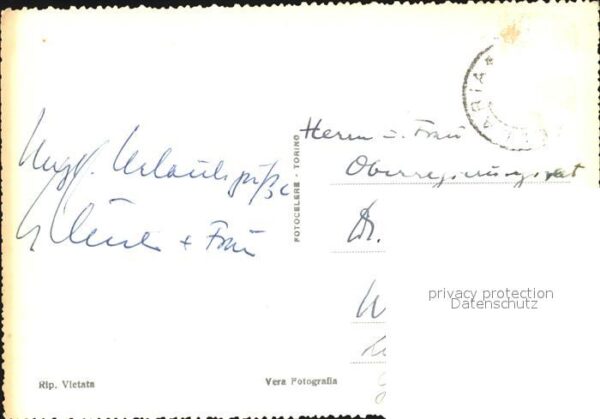 Urlaubsgrüße
+ Frau
FOTOCELERE - TORINO
Herrn u. Frau
Oberregierungsrat
Dr.
privacy protection
Datenschutz
Rip. Vietata
Vera Fotografia